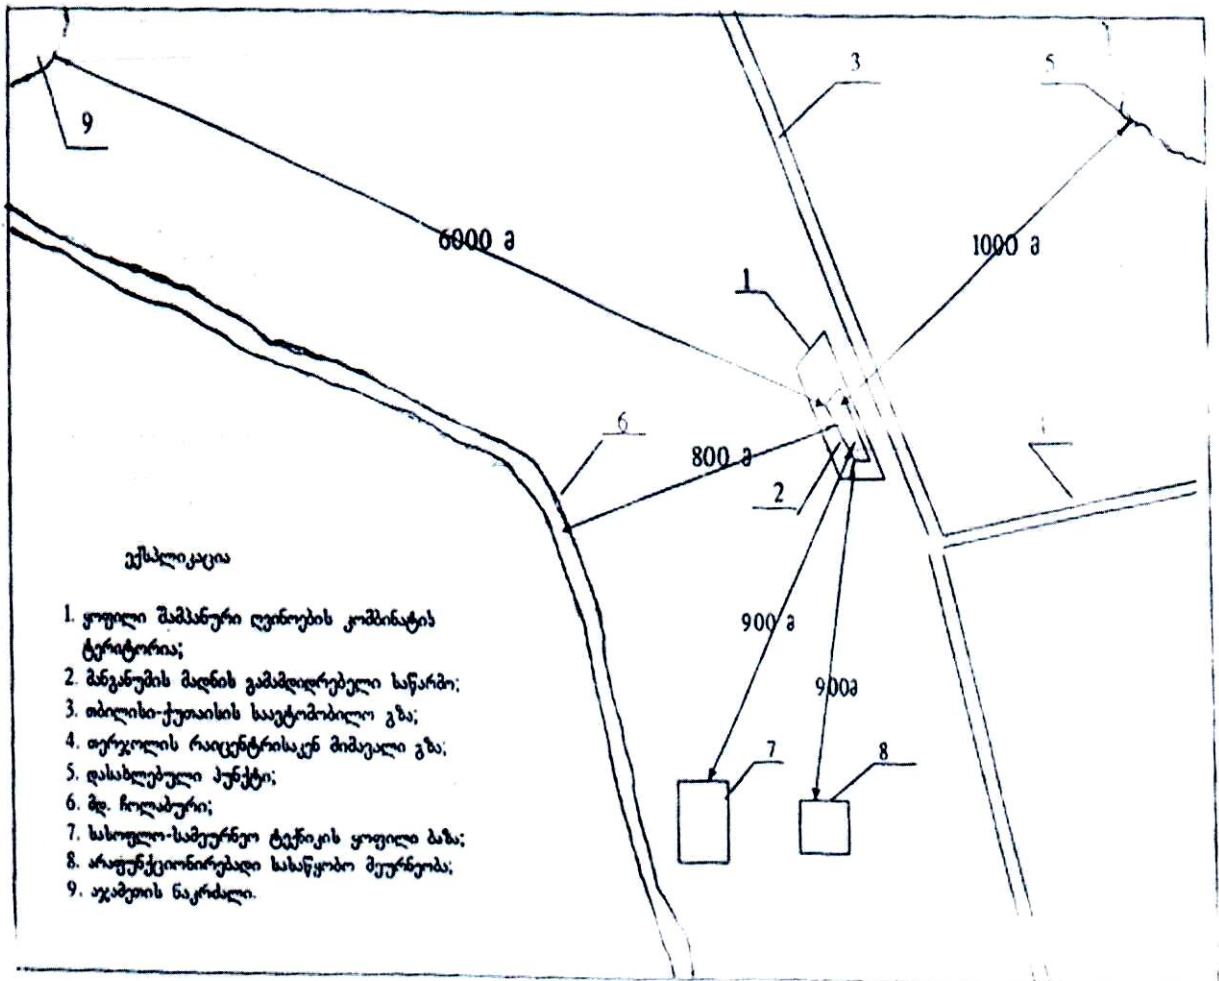 3
5
9
6000 მ
1000 მ
1
6
800 მ
2
ექსპლიკაცია
1. ყოფილი შამპანური ღვინოების კომბინატის
ტერიტორია;
2. მანგანუმის მადნის გამამდიდრებელი საწარმო;
3. თბილისი-ქუთაისის საავტომობილო გზა;
4. თერჯოლის რაიცენტრისაკენ მიმავალი გზა;
5. დასახლებული პუნქტი;
6. მდ. ჩოლაბური;
7. სასოფლო-სამეურნეო ტექნიკის ყოფილი ბაზა;
8. არაფუნქციონირებადი სასაწყობო მეურნეობა;
9. აჯამეთის ნაკრძალი.
900 მ
900მ
7
8